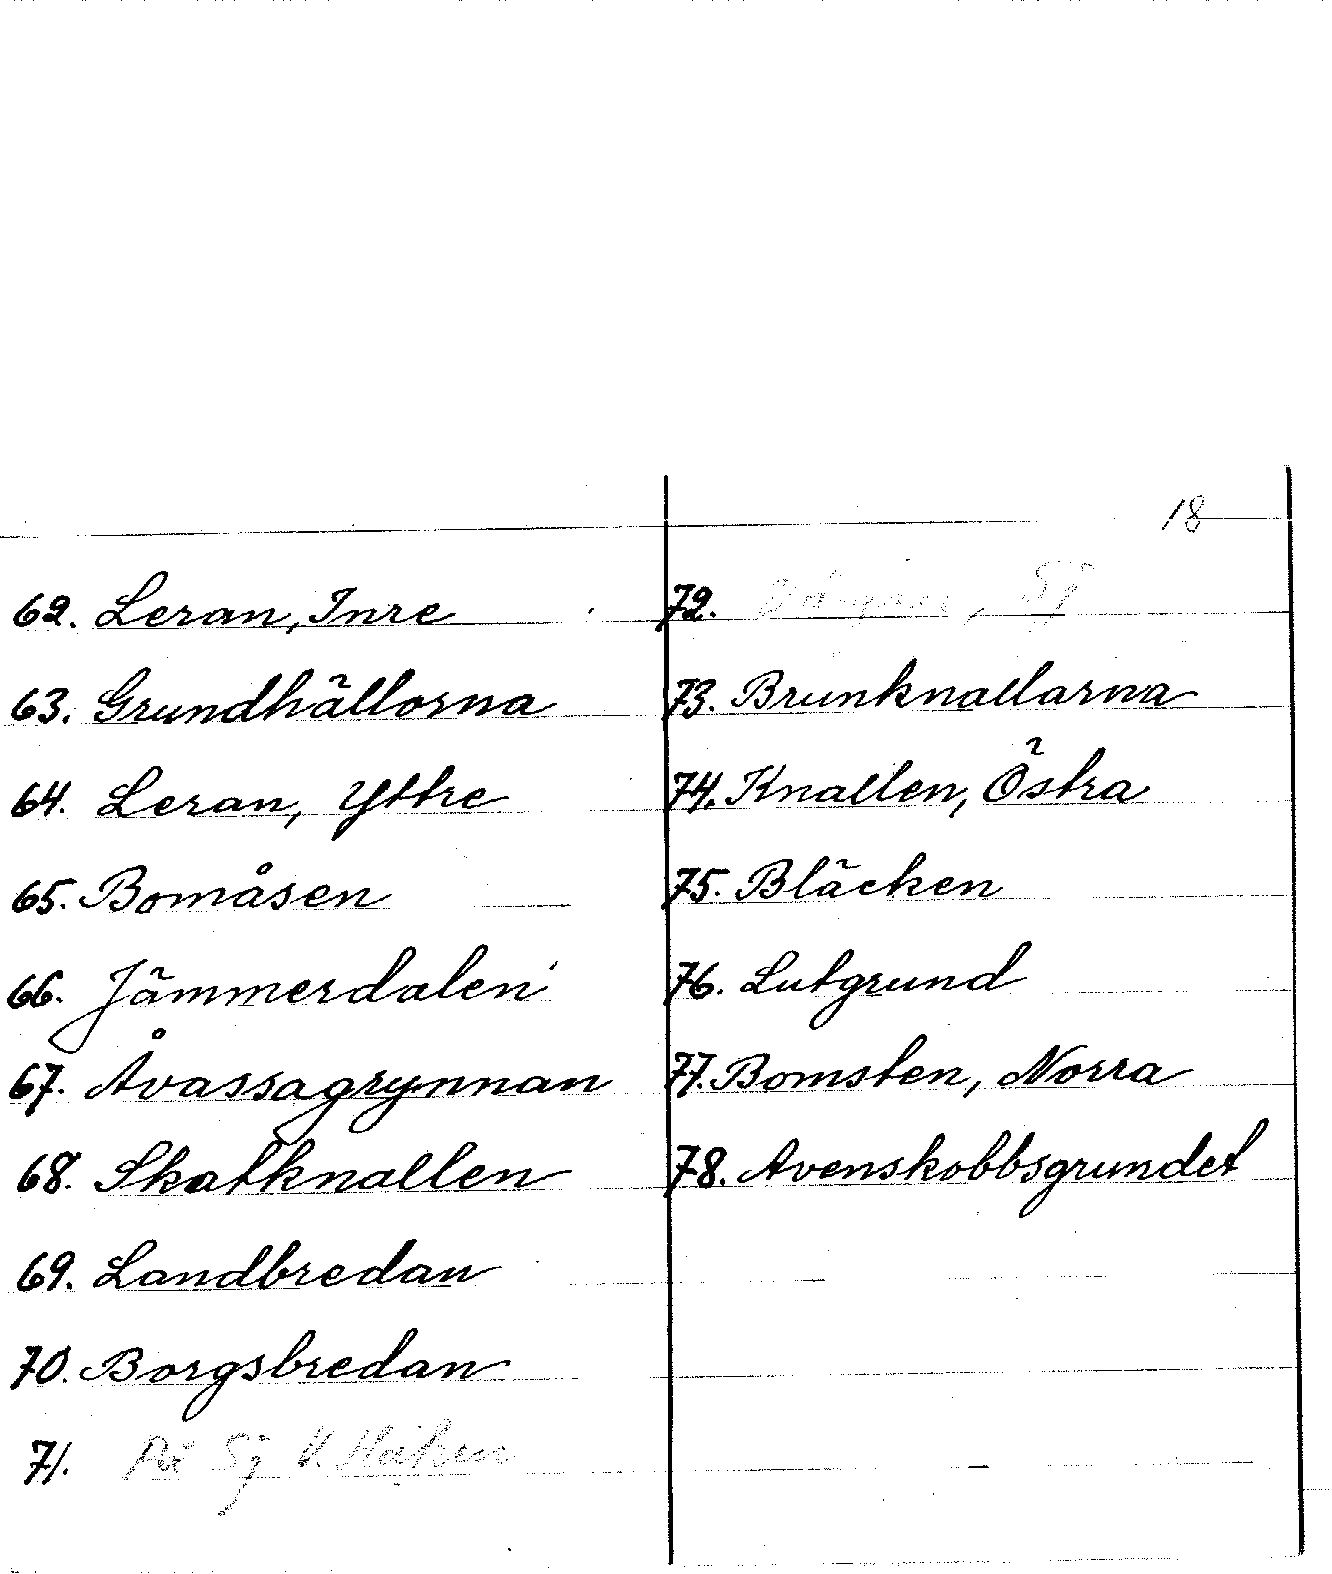 18
62. Leran, Inre
63. Grundhällorna
64. Leran, Yttre
65. Bomåsen
66. Jämmerdalen
67. Åvassagrynnan
68. Skatknallen
69. Landbredan
70. Borgsbredan
71.
72.
73. Brunknallarna
74. Knallen, Östra
75. Bläcken
76. Lutgrund
77. Bomsten, Norra
78. Avenskobbsgrundet